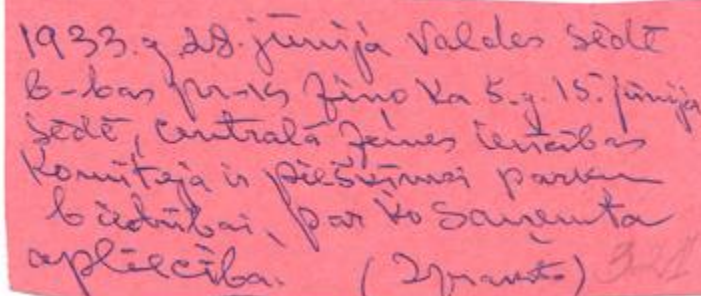 1933.g 28. jūnija Valdes sēdē
b-bas pr-is ziņo ka š.g. 15. jūnija
sēdē, centralā zemes ierīcības
Komiteja ir piešķīrusi parku
biedrībai, par ko saņemta
apliecība. (Izraksts) 321